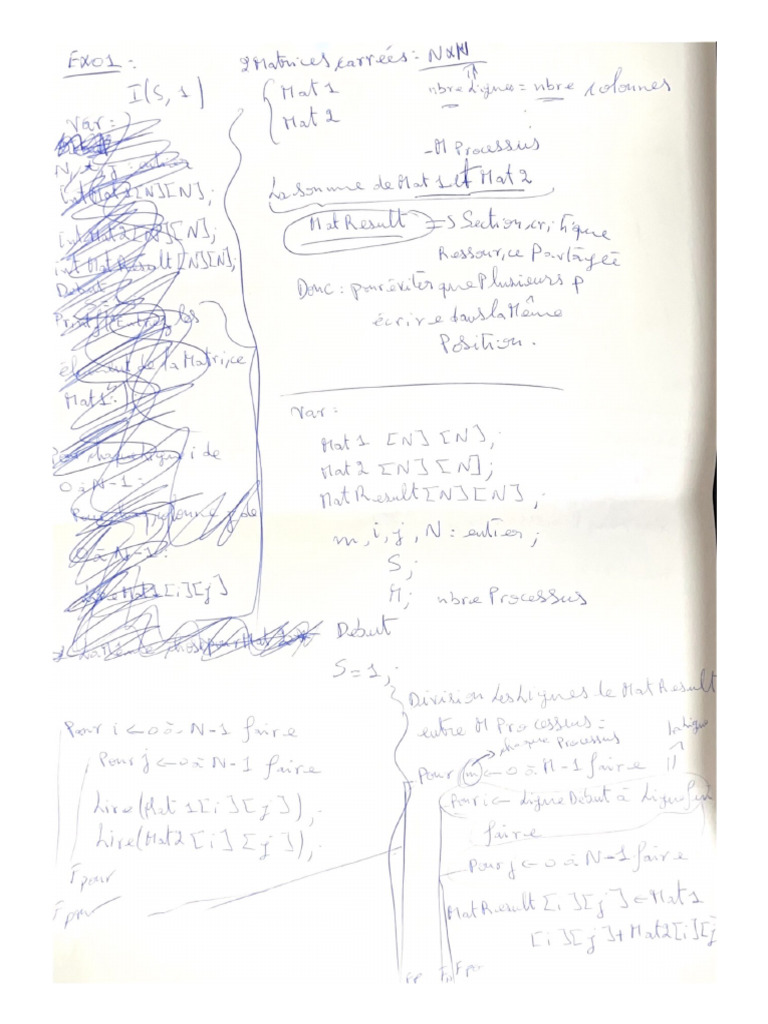 EX01 :
I(S,1)
2 Matrices carrées : N x N
Mat 1
nbre Lignes = nbre colonnes
Mat 2
- M Processus
La somme de Mat 1 et Mat 2
Mat Result => Section critique
Ressource Partagée
Donc : pour éviter que Plusieurs p
écrire dans la Même
Position.
Var :
int Mat 2 [N][N];
int Mat 2 [N][N];
int Mat Result [N][N];
Debut
Printf(Entrez les
élément de la Matrice
Mat1:
Pour chaque ligne i de
0 à N-1 :
Pour chaque colonne j de
0 à N-1 :
Mat1[i][j]
Var :
Mat 1 [N] [N];
Mat 2 [N] [N];
Mat Result [N] [N];
m, i, j, N : entier;
S;
M; nbre Processus
Debut
S = 1;
Pour i ← 0 à N-1 faire
Pour j ← 0 à N-1 faire
Lire(Mat 1 [i] [j]);
Lire(Mat 2 [i] [j]);
Fpour
Fpour
Division Les Lignes de Mat Result
entre M Processus :
chaque Processus
Pour m ← 0 à M-1 faire
Pour i ← Ligne Début à Ligne fin
faire
Pour j ← 0 à N-1 faire
Mat Result [i] [j] ← Mat 1
[i] [j] + Mat 2 [i] [j]